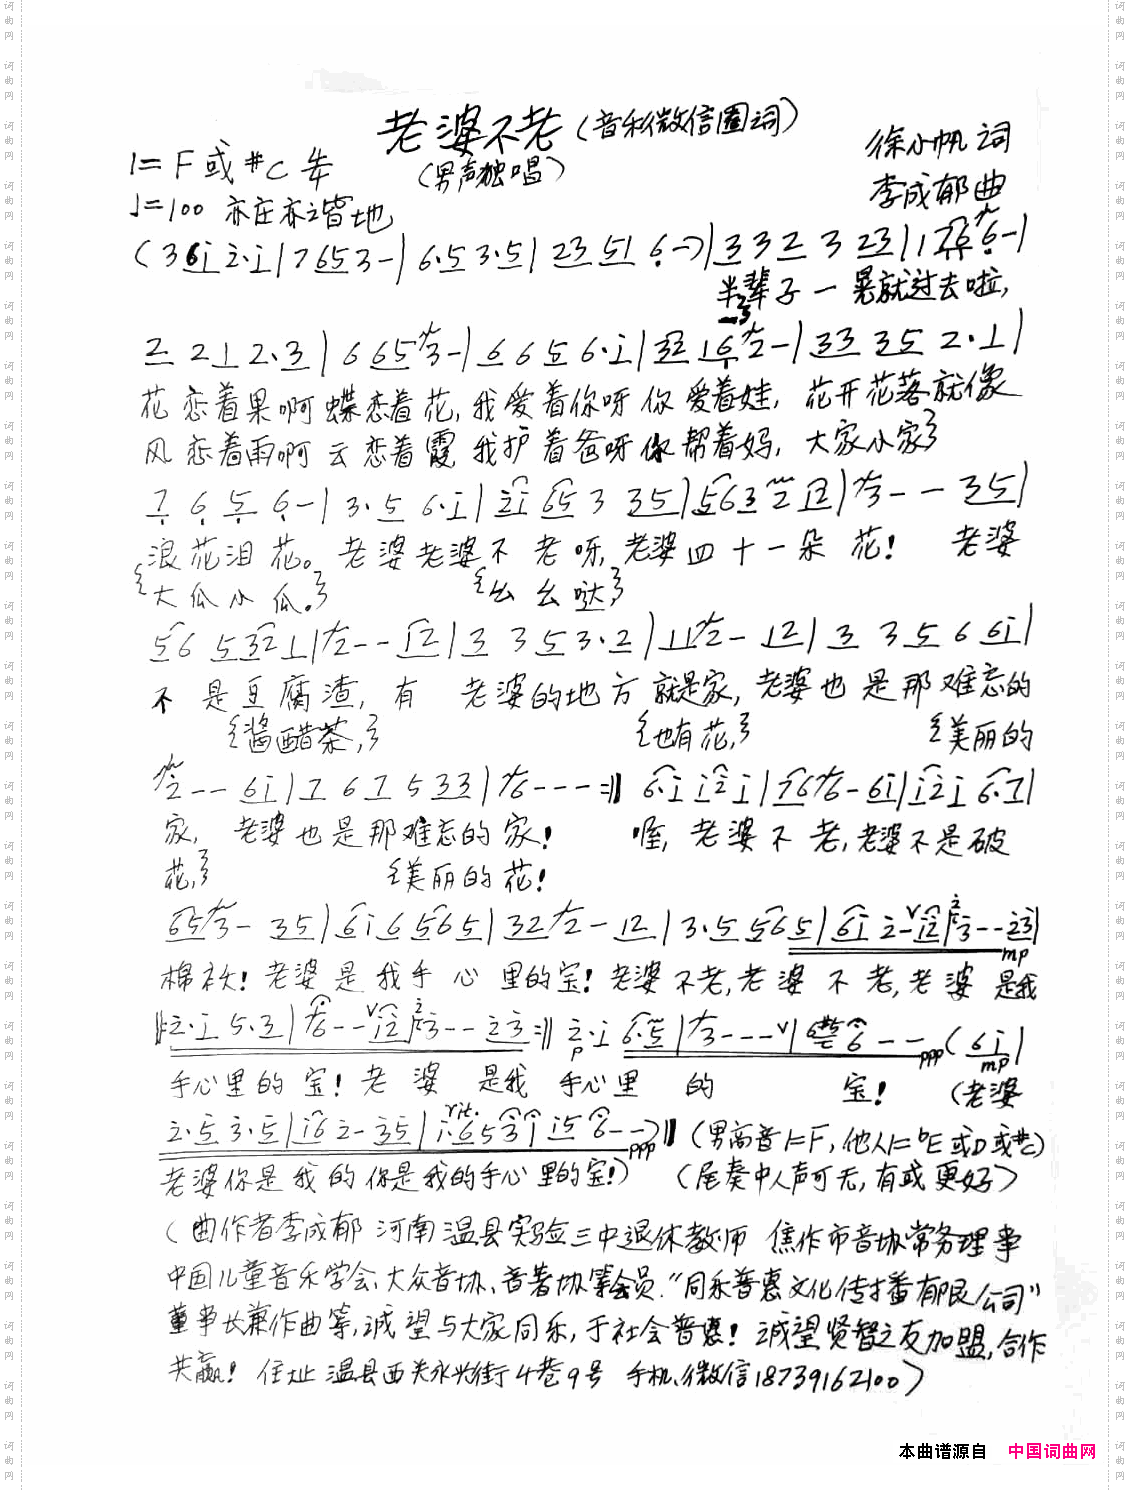 老婆不老(音乐微信圈词)
(男声独唱)
徐小帆 词
李成郁 曲
1=F或#C
♩=100 亦庄亦谐地
(3 6i 2·i|7 65 3-|6·5 3·5|23 51 6-)|3 3 2 3 23|1 76 6-|
半辈子一晃就过去啦,
2 21 2·3|6 65 3-|6 6 5 6·i|32 16 2-|33 35 2·1|
花恋着果啊蝶恋着花,我爱着你呀你爱着娃,花开花落就像
风恋着雨啊云恋着霞 我护着爸呀你帮着妈,大家小家}
7 6 5 6-|3·5 6·i|2i 65 3 35|563 2 12|3-- 35|
浪花泪花。老婆老婆不老呀,老婆四十一朵花! 老婆
{大瓜小瓜。} {么么哒}
56 5 32 1|2-- 12|3 3 5 3·2|11 2- 12|3 3 5 6 6i|
不是豆腐渣,有 老婆的地方就是家,老婆也是那难忘的
{酱醋茶,} {也有花,} {美丽的
2-- 6i|7 6 7 5 33|6---:‖ 6·i i2 i|76 6- 6i|i2 i 6·7|
家, 老婆也是那难忘的家! 喔,老婆不老,老婆不是破
花,} {美丽的花!
65 3- 35|6i 6 56 5|32 2- 12|3·5 56 5|6i 2-i2|3--23|
mp
棉袄!老婆是我手心里的宝!老婆不老,老婆不老,老婆 是我
‖:2·i 5·3|6--i2|3-- 23:‖2·i 6·5|3---|6 --(6i|
p ppp mp
手心里的宝!老婆 是我 手心里 的 宝! (老婆
2·5 3·5|i6 2- 35|i·65 31 i5 6--)‖(男高音1=F,他人1=bE或D或#C)
rit. ppp
老婆你是我的你是我的手心里的宝!) (尾奏中人声可无,有或更好)
(曲作者李成郁 河南温县实验三中退休教师 焦作市音协常务理事
中国儿童音乐学会、大众音协、音著协等会员.“同乐普惠文化传播有限公司”
董事长兼作曲等,诚望与大家同乐,于社会普惠!诚望贤智之友加盟,合作
共赢!住址 温县西关永兴街4巷9号 手机、微信18739162100)
本曲谱源自 中国词曲网